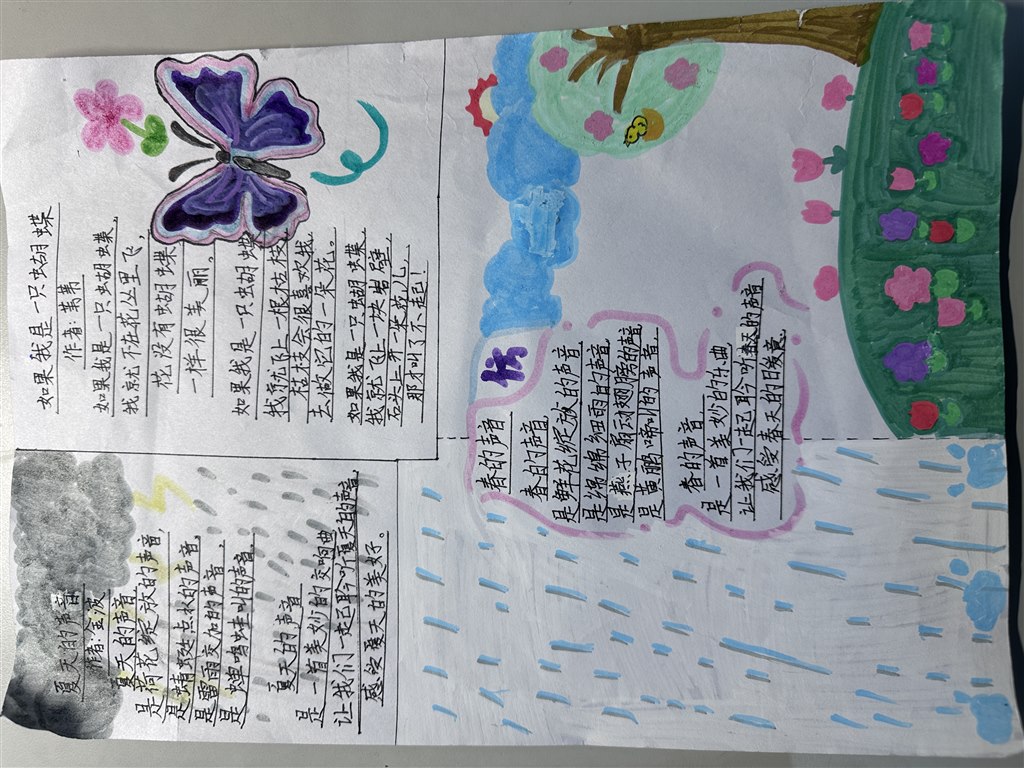 夏天的声音
作者:金波
夏天的声音
是荷花绽放的声音,
是蜻蜓点水的声音,
是雷雨交加的声音,
是蝉鸣蛙叫的声音。
夏天的声音
是一首美妙的交响曲
让我们一起聆听夏天的声音,
感受夏天的美好。
如果我是一只蝴蝶
作者
如果我是一只蝴蝶,
我就不在花丛里飞,
花没有蝴蝶
一样很美丽。
如果我是一只蝴蝶
我就飞上一根枯枝,
枯枝会很喜欢我,
去做它的一朵花。
如果我是一只蝴蝶,
我就飞上一块岩壁,
石头上开一朵花儿,
那才叫了不起!
春的声音
春的声音
是鲜花绽放的声音,
是绵绵细雨的声音,
是燕子扇动翅膀的声音,
是黄鹂啼叫的声音.
春的声音
是一首美妙的乐曲
让我们一起聆听春天的声音
感受春天的暖意.